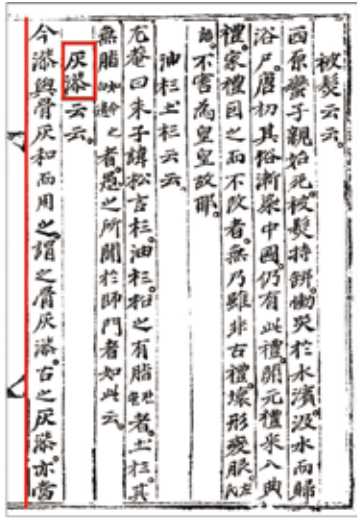 被髮云云
西原蠻子親始死被髮持餠慟哭於水濱汲水而歸
浴尸唐初其俗漸染中國仍有此禮開元禮采入典
禮家禮因之而不改者無乃雖非古禮壞形變服
不害為皇皇故耶
油杉土杉云云
尤菴曰朱子諱松言杉油杉杉之有脂者土杉其
無脂者愚之所聞於師門者如此云
灰漆云云
今漆與骨灰和而用之謂之骨灰漆古之灰漆亦當